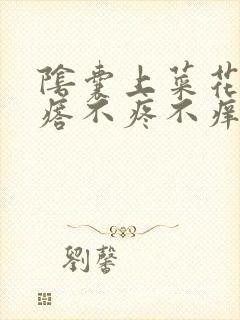 陰囊上菜花
瘩不疼不痒
劉馨